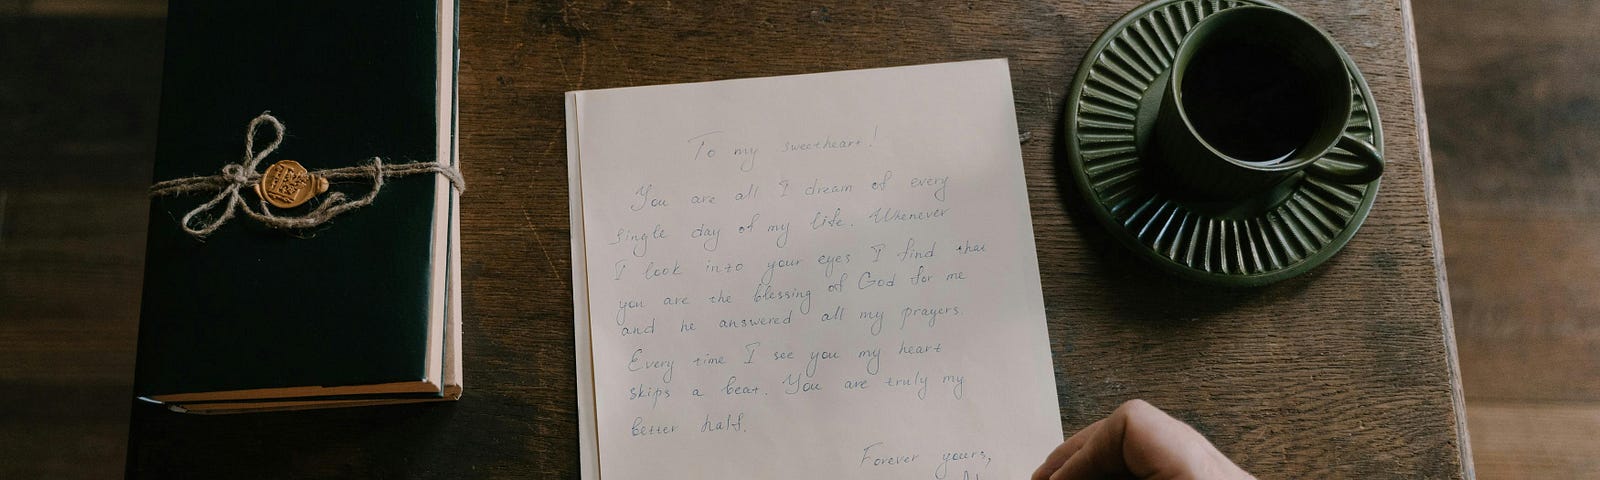 To my sweetheart!
You are all I dream of every
single day of my life. Whenever
I look into your eyes I find that
you are the blessing of God for me
and he answered all my prayers.
Every time I see you my heart
skips a beat. You are truly my
better half.
Forever yours,